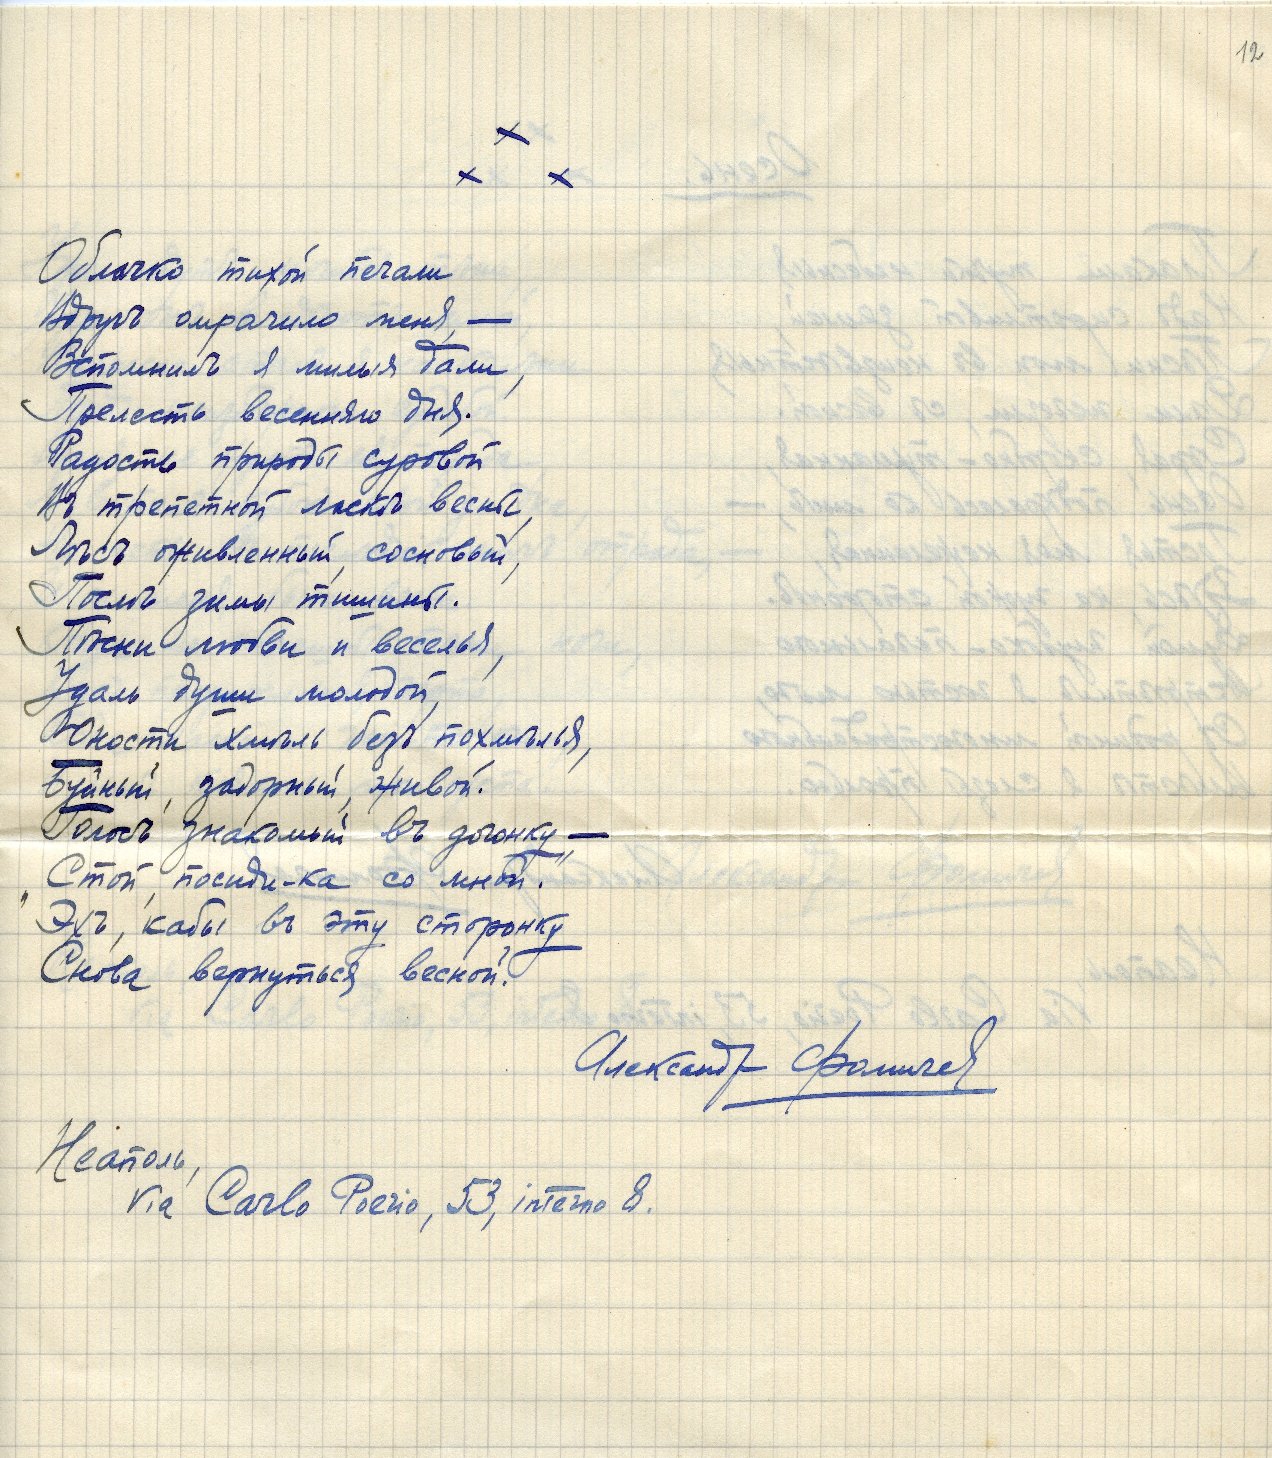 12
× × ×
Облачко тихой печали
Вдругъ омрачило меня, —
Вспомнилъ я милыя дали,
Прелесть весенняго дня.
Радость природы суровой
Въ трепетной ласкѣ весны,
Лѣсъ оживленный, сосновый,
Послѣ зимы тишины.
Пѣсни любви и веселья,
Удаль души молодой,
Юности хмѣль безъ похмѣлья,
Буйный, задорный, живой.
Голосъ знакомый въ догонку, —
„Стой, посиди-ка со мной.“
Эхъ, кабы въ эту сторонку
Снова вернуться весной.
Александр Фомичев
Неаполь,
Via Carlo Poerio, 53, interno 8.